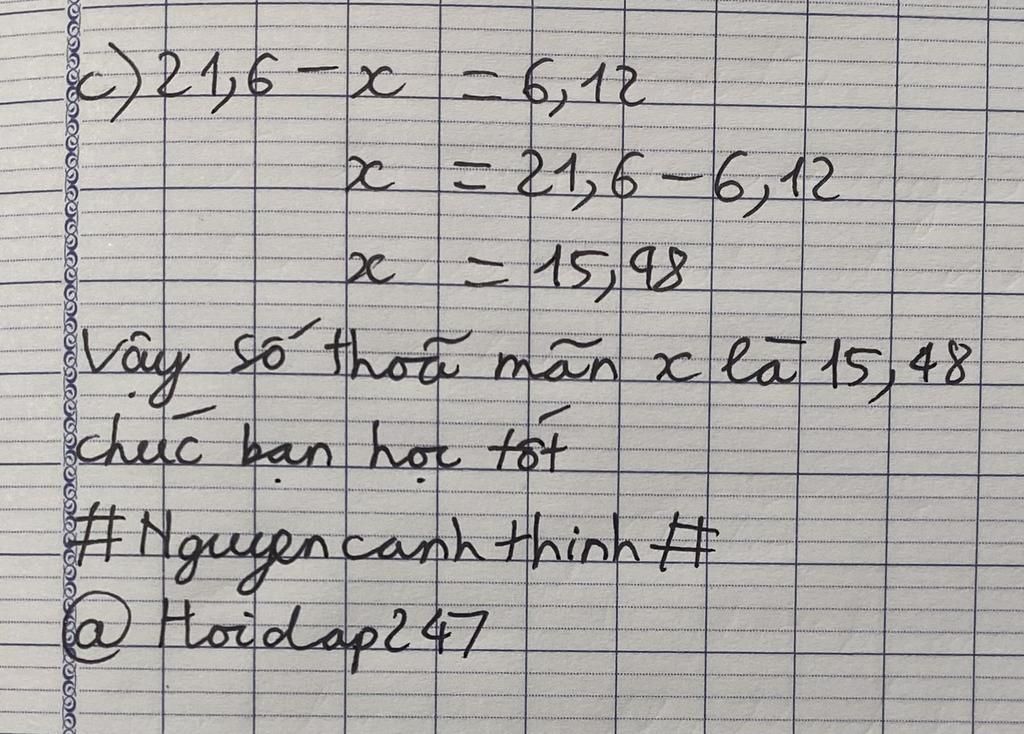 c) 21,6 - x = 6,12
x = 21,6 - 6,12
x = 15,48
Vậy số thoã mãn x là 15,48
chúc bạn học tốt
#Nguyencanhthinh#
@ Hoidap247